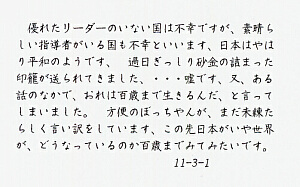 優れたリーダーのいない国は不幸ですが、素晴ら
しい指導者がいる国も不幸といいます、日本はやは
り平和のようです、　過日ぎっしり砂金の詰まった
印籠が送られてきました、・・・嘘です、又、ある
話のなかで、おれは百歳まで生きるんだ、と言って
しまいました。　方便のぼっちゃんが、まだ未練た
らしく言い訳をしています、この先日本がいや世界
が、どうなっているのか百歳までみてみたいです。
11-3-1